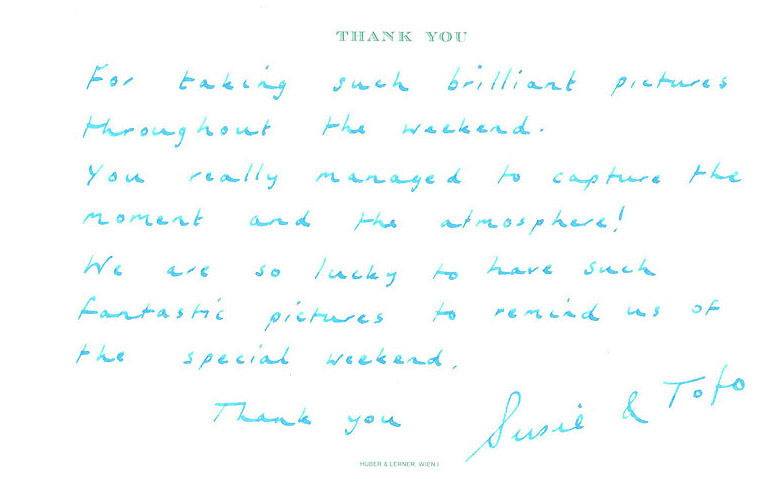 THANK YOU
For taking such brilliant pictures
throughout the weekend.
You really managed to capture the
moment and the atmosphere!
We are so lucky to have such
fantastic pictures to remind us of
the special weekend.
Thank you Susie & Tofo
HUBER & LERNER, WIEN I